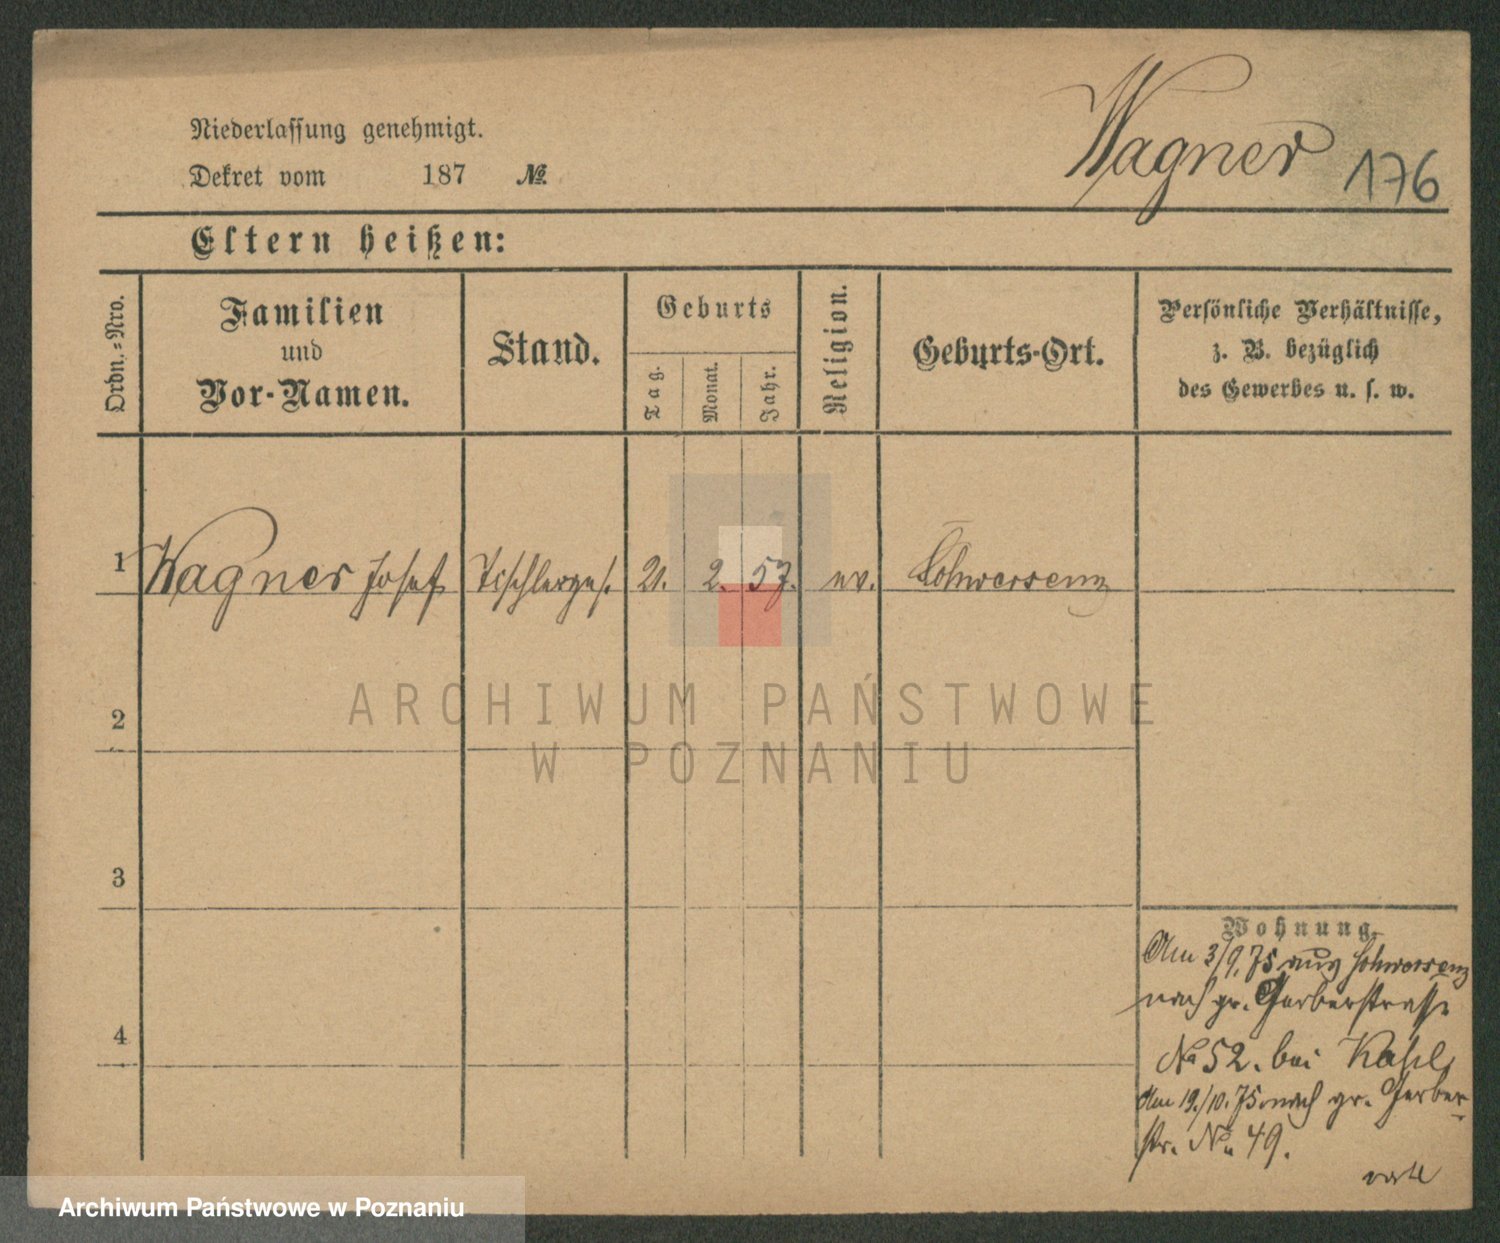 Wagner 176
Niederlassung genehmigt.
Dekret vom 187 №
Eltern heißen:
Ordn.-Nro.
Familien
und
Vor-Namen.
Stand.
Geburts
Tag.
Monat.
Jahr.
Religion.
Geburts-Ort.
Persönliche Verhältnisse,
z. B. bezüglich
des Gewerbes u. s. w.
1 Wagner Josef Tischlerges. 21. 2. 57. ev. Schwersenz
2
3
4
Wohnung.
Am 3/9. 75 aus Schwersenz
nach gr. Gerberstrasse
No 52. bei Kahl,
Am 19./10. 75 nach gr. Gerber-
str. No 49.
ARCHIWUM PAŃSTWOWE
W POZNANIU
Archiwum Państwowe w Poznaniu